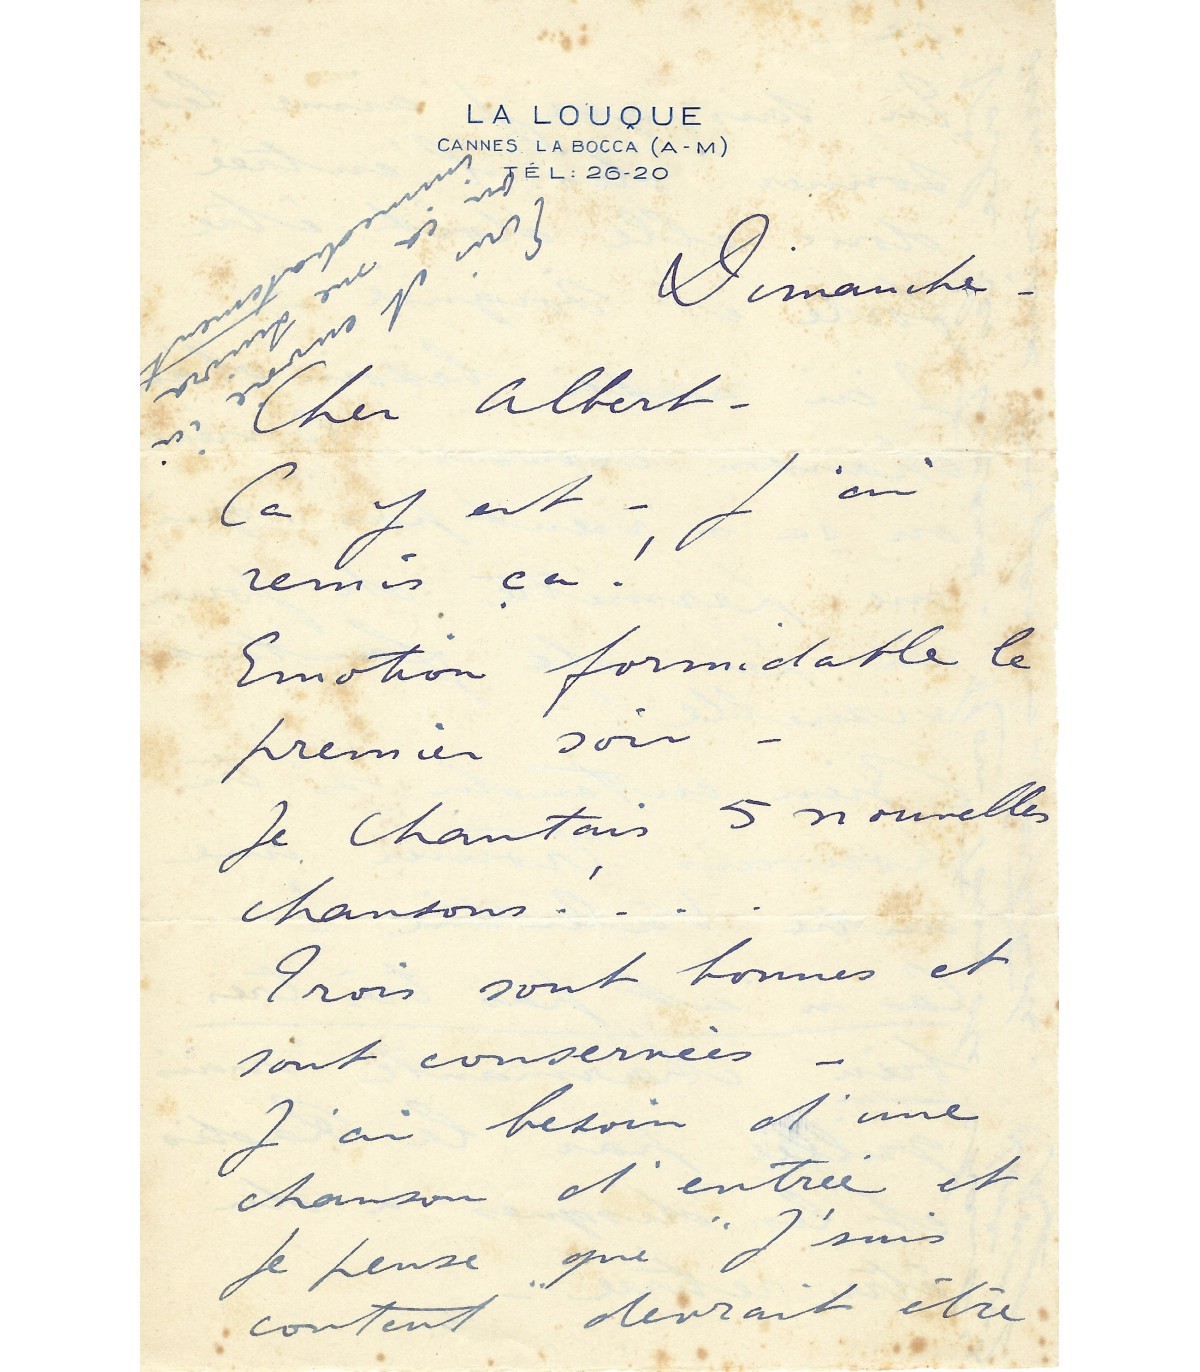 LA LOUQUE
CANNES. LA BOCCA (A-M)
TÉL: 26-20
Ecris et envoie ici
on ça me suivra
immédiatement
Dimanche -
Cher Albert -
Ca y est - J'ai
remis ça!
Emotion formidable le
premier soir -
Je chantais 5 nouvelles
chansons! . . . .
Trois sont bonnes et
sont conservées -
J'ai besoin d'une
chanson d'entrée et
je pense que "J'suis
content" devrait être